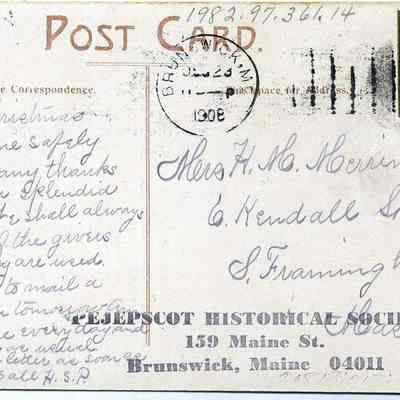 1982.97.361.14
POST CARD.
BRUNSWICK, M
23
1908
e Correspondence.
Space for Address
ristmas
me safely
any thanks
splendid
e shall always
of the givers
ey are used.
to mail a
tomorrow
e everyday and
letter as soon as
all H.S.P.
Mrs H. M. Merri
6. Kendall S
S. Framing
Mas
PEJEPSCOT HISTORICAL SOCI
159 Maine St.
Brunswick, Maine 04011